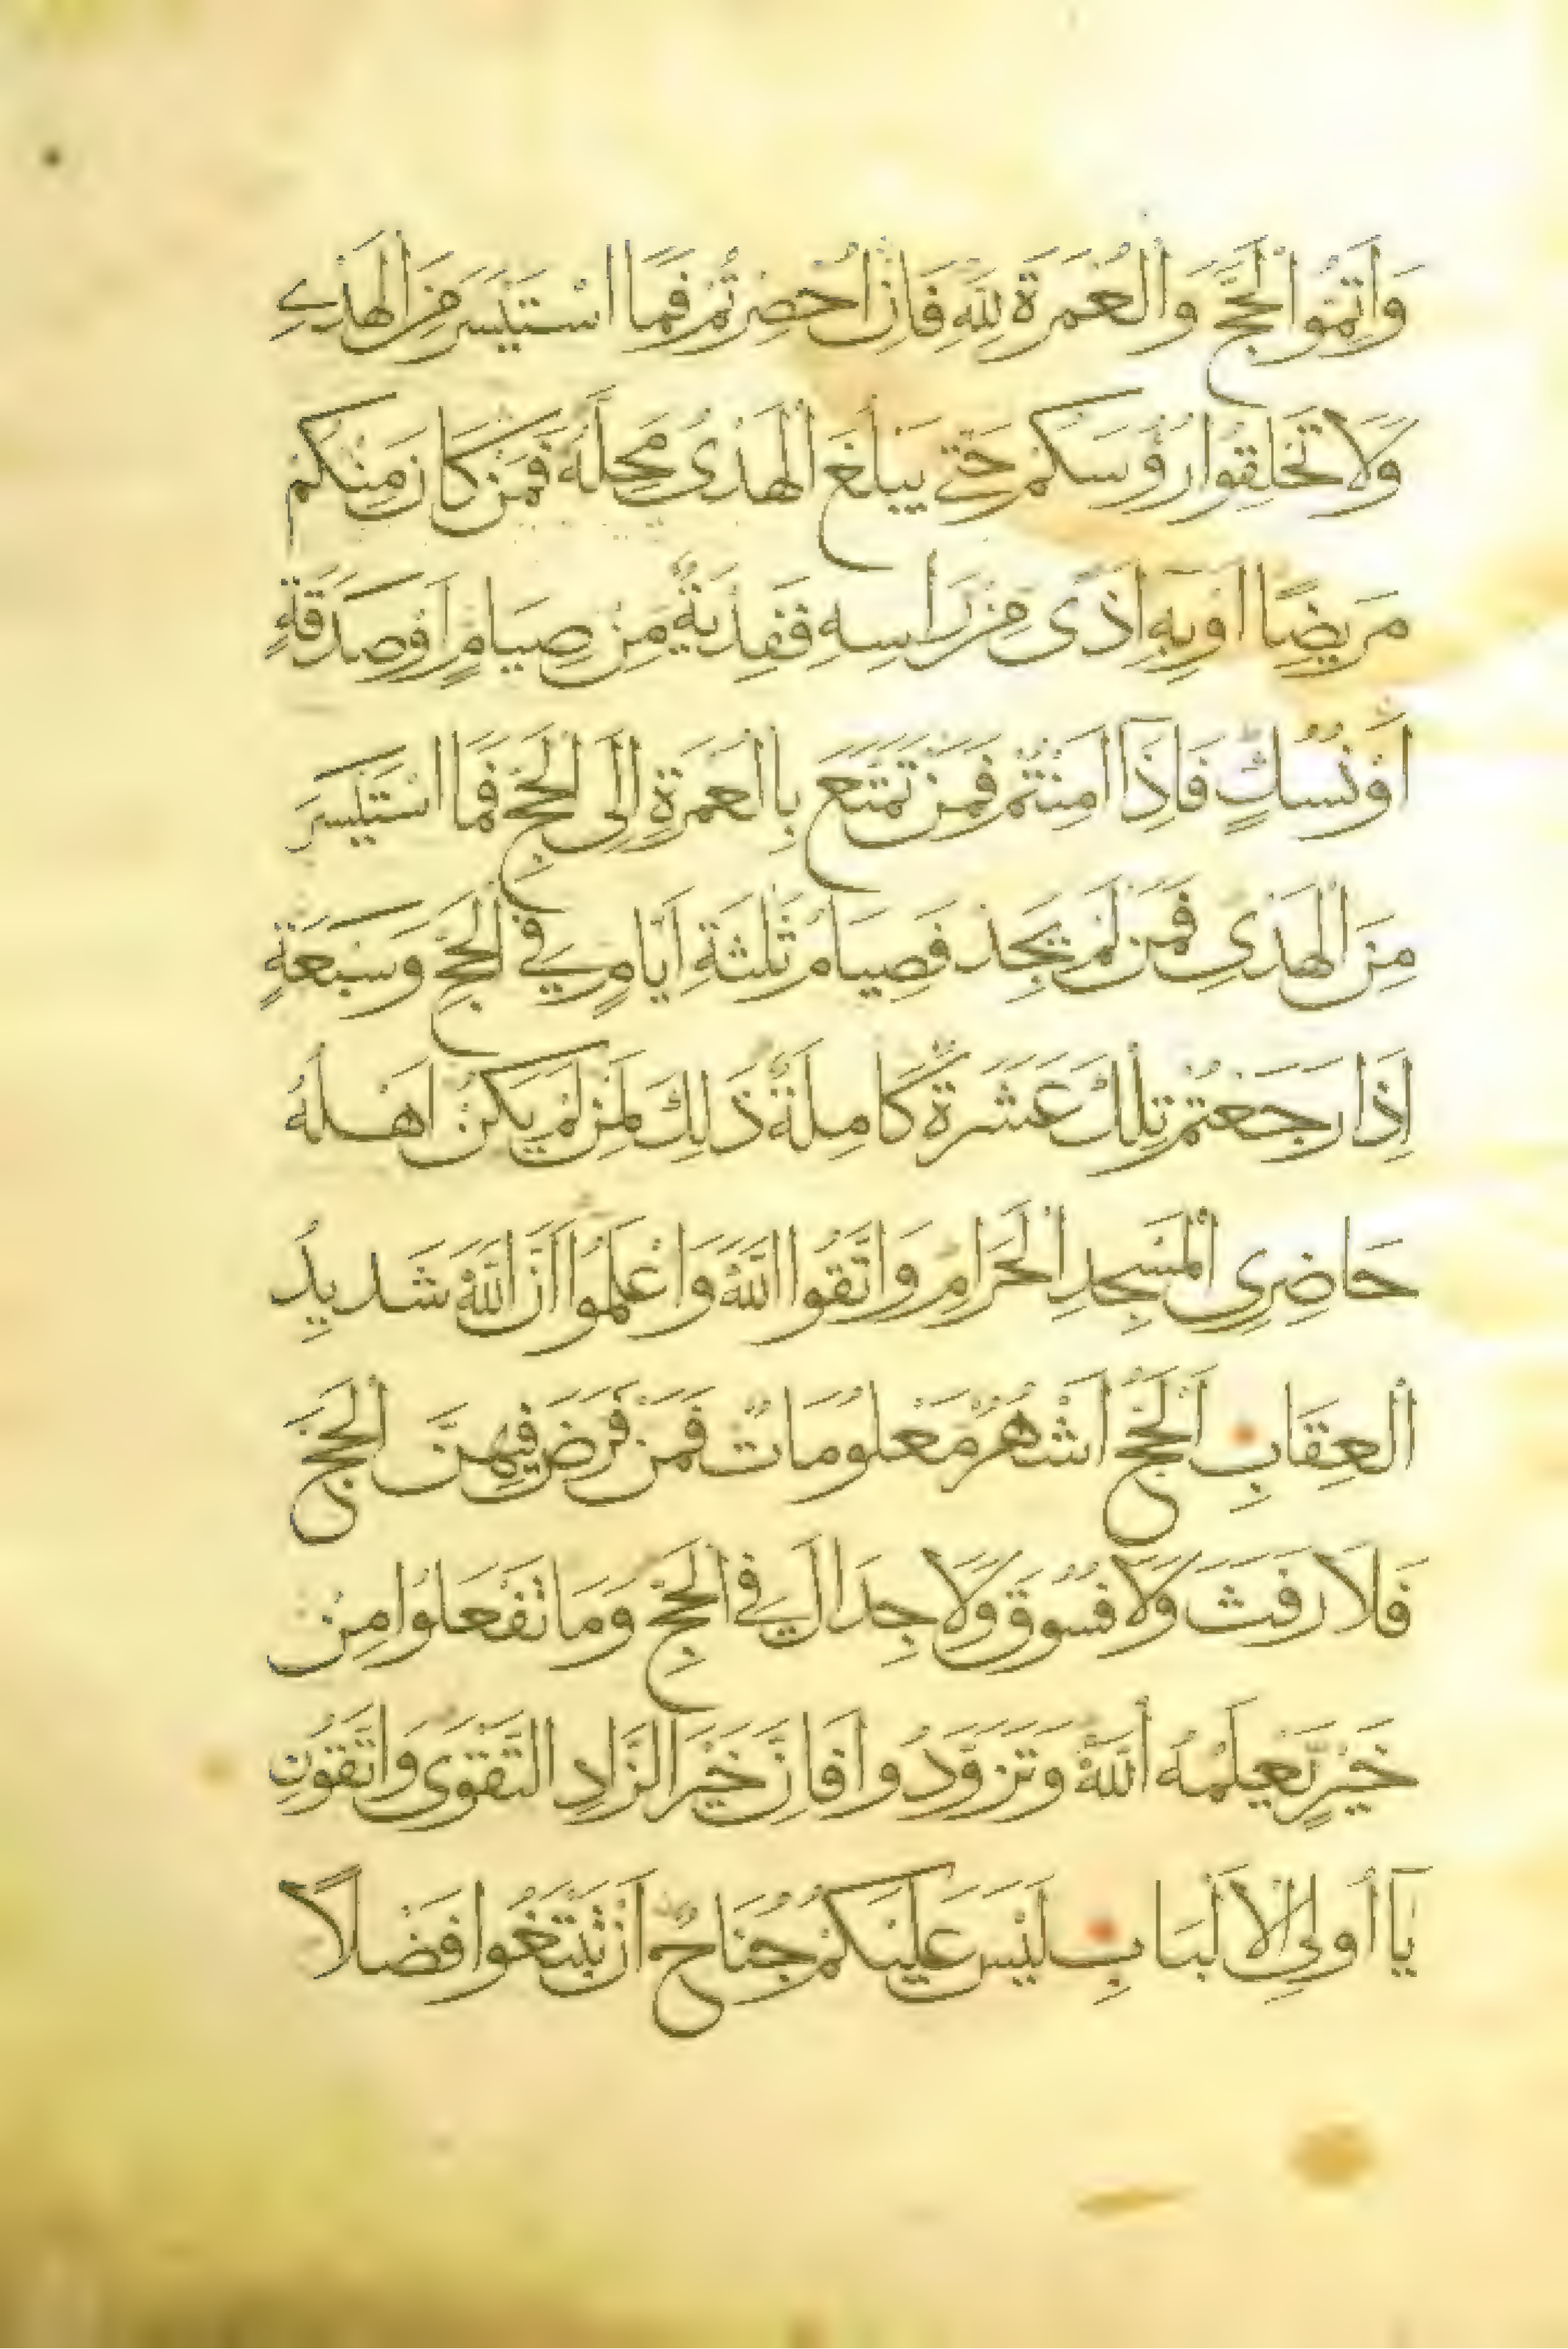 وَاَتِمُّوا الْحَجَّ وَالْعُمْرَةَ لِلّٰهِ فَاِنْ اُحْصِرْتُمْ فَمَا اسْتَيْسَرَ مِنَ الْهَدْيِ
وَلَا تَحْلِقُوا رُؤُسَكُمْ حَتّٰى يَبْلُغَ الْهَدْىُ مَحِلَّهُ فَمَنْ كَانَ مِنْكُمْ
مَرِيضًا اَوْ بِهِ اَذًى مِنْ رَاْسِهِ فَفِدْيَةٌ مِنْ صِيَامٍ اَوْ صَدَقَةٍ
اَوْ نُسُكٍ فَاِذَا اَمِنْتُمْ فَمَنْ تَمَتَّعَ بِاالْعُمْرَةِ اِلَى الْحَجِّ فَمَا اسْتَيْسَرَ
مِنَ الْهَدْىِ فَمَنْ لَمْ يَجِدْ فَصِيَامُ ثَلٰثَةِ اَيَّامٍ فِي الْحَجِّ وَسَبْعَةٍ
اِذَا رَجَعْتُمْ تِلْكَ عَشَرَةٌ كَامِلَةٌ ذٰلِكَ لِمَنْ لَمْ يَكُنْ اَهْلُهُ
حَاضِرِى الْمَسْجِدِ الْحَرَامِ وَاتَّقُوا اللّٰهَ وَاعْلَمُوا اَنَّ اللّٰهَ شَدِيدُ
الْعِقَابِ اَلْحَجُّ اَشْهُرٌ مَعْلُومَاتٌ فَمَنْ فَرَضَ فِيهِنَّ الْحَجَّ
فَلَا رَفَثَ وَلَا فُسُوقَ وَلَا جِدَالَ فِي الْحَجِّ وَمَا تَفْعَلُوا مِنْ
خَيْرٍ يَعْلَمْهُ اللّٰهُ وَتَزَوَّدُوا فَاِنَّ خَيْرَ الزَّادِ التَّقْوٰى وَاتَّقُونِ
يَا اُولِى الْاَلْبَابِ لَيْسَ عَلَيْكُمْ جُنَاحٌ اَنْ تَبْتَغُوا فَضْلًا